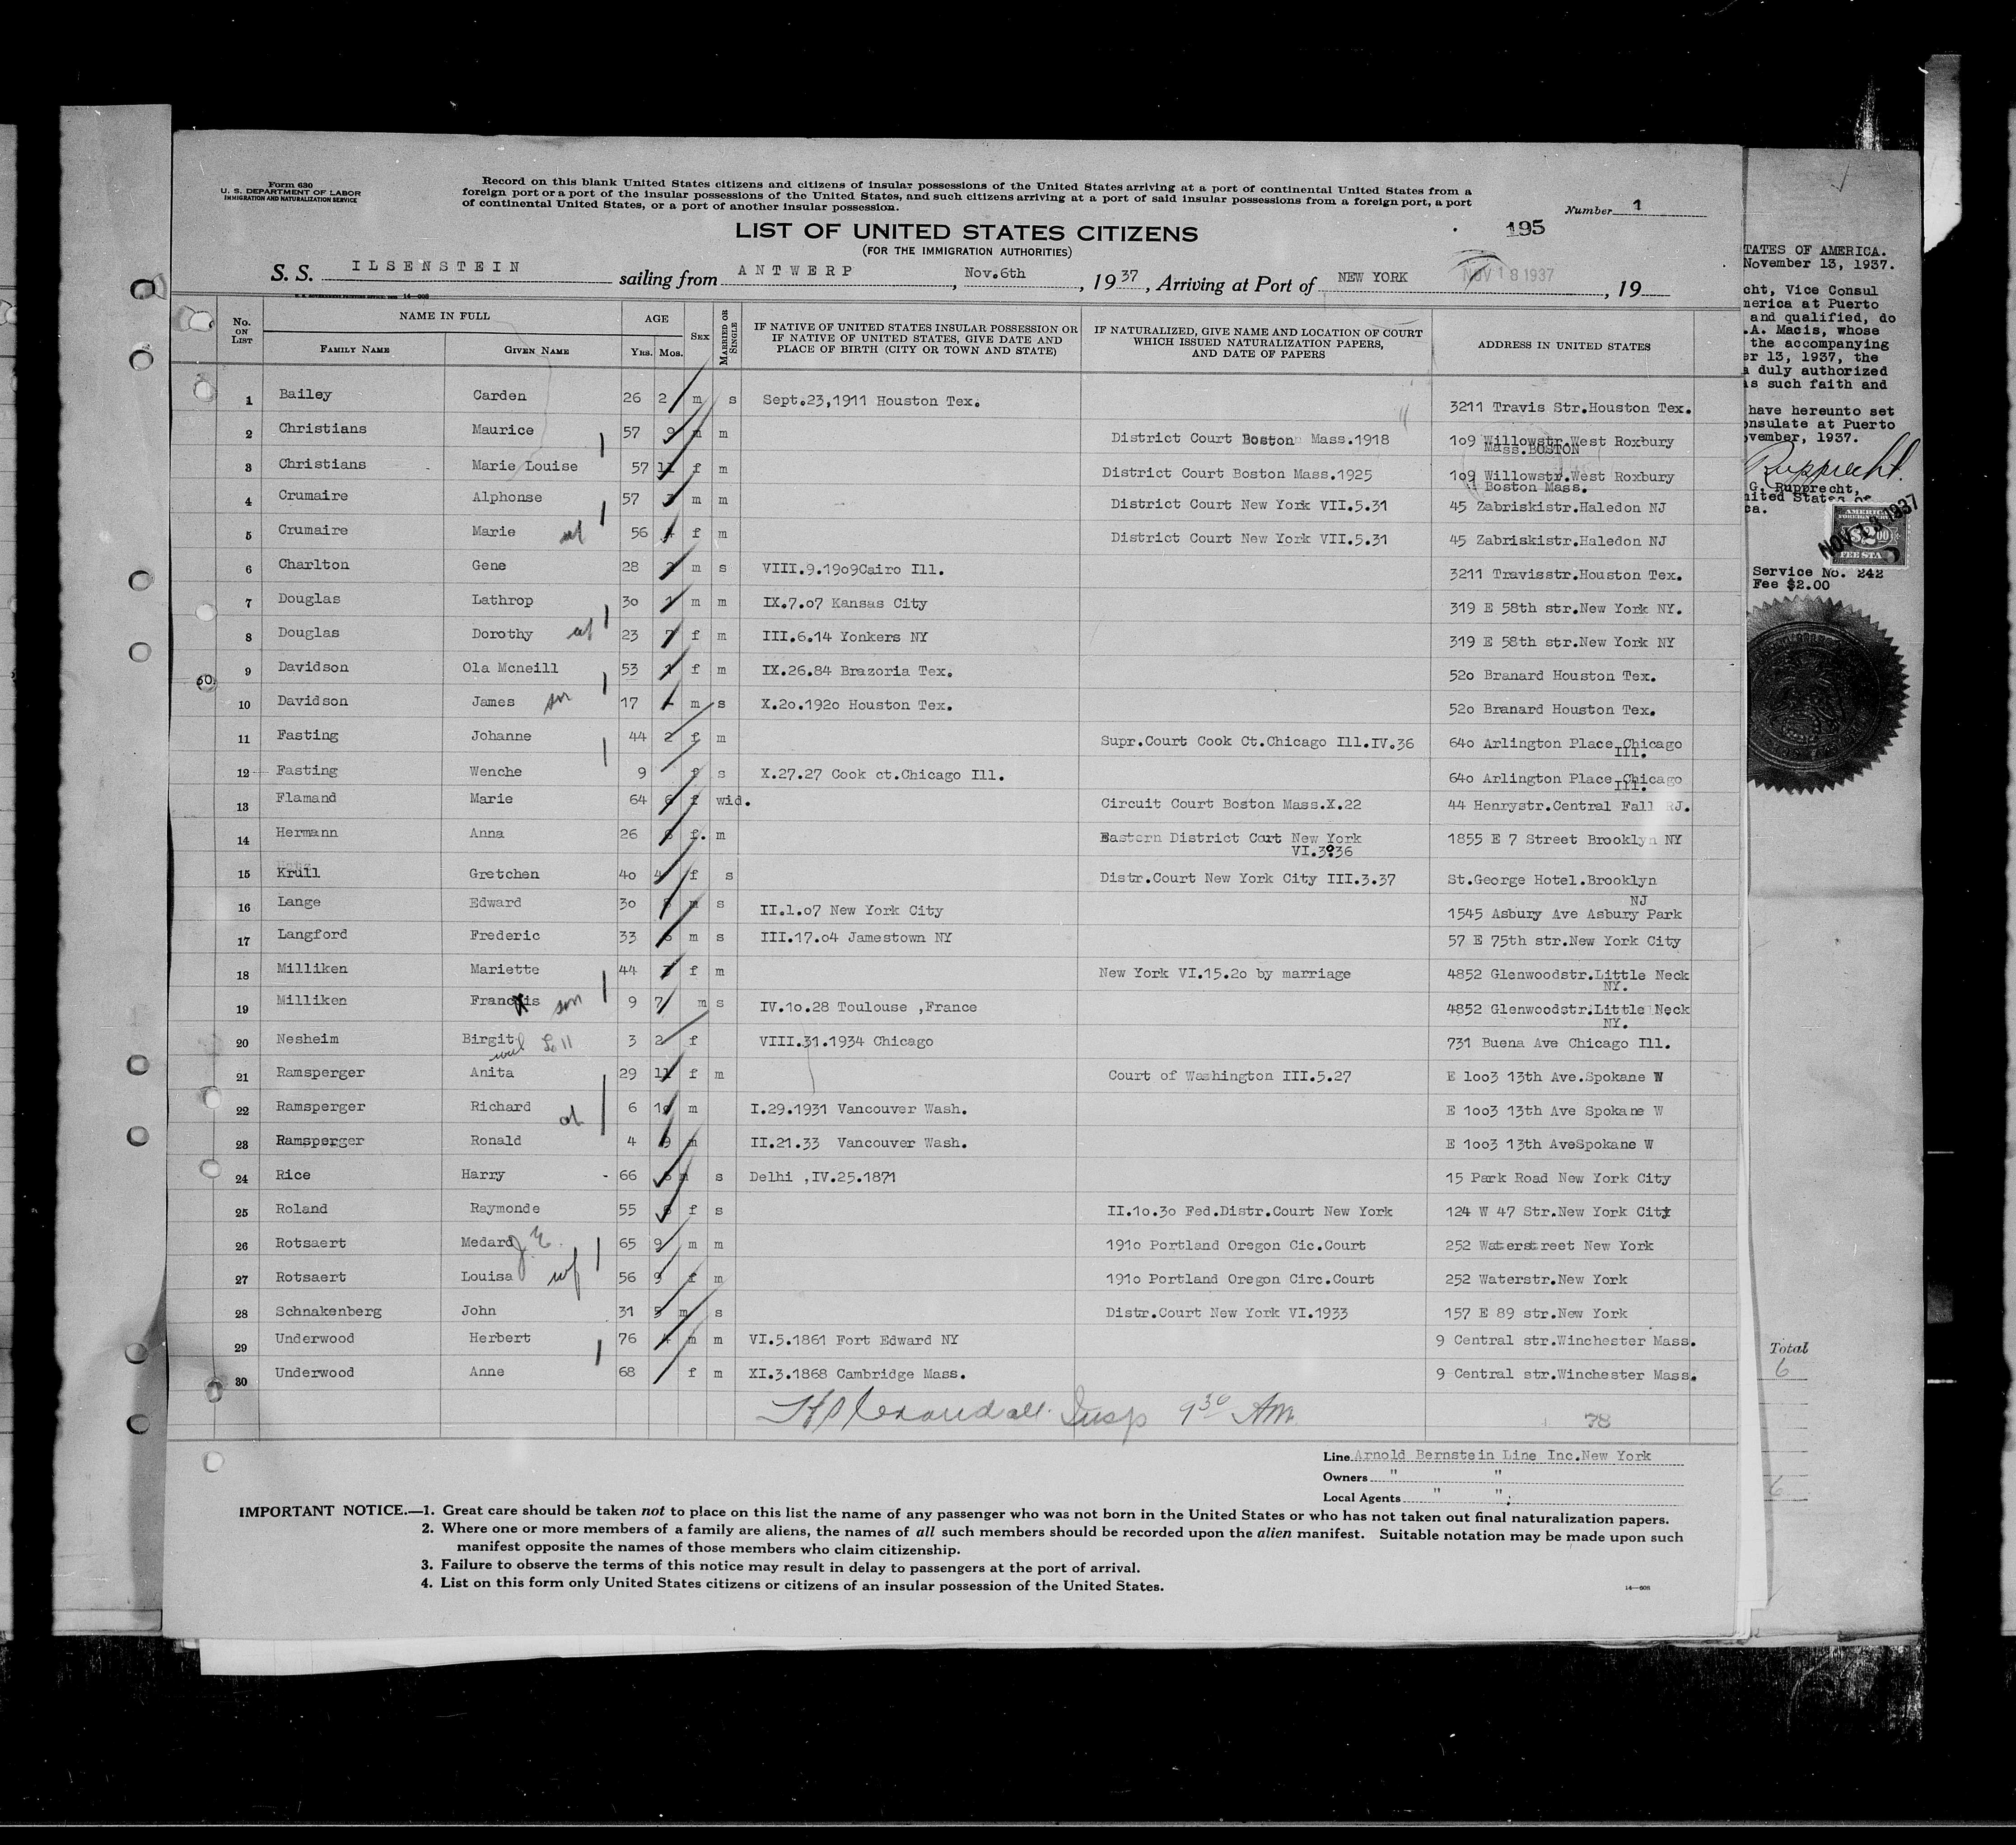 Form 630
U. S. DEPARTMENT OF LABOR
IMMIGRATION AND NATURALIZATION SERVICE
Record on this blank United States citizens and citizens of insular possessions of the United States arriving at a port of continental United States from a
foreign port or a port of the insular possessions of the United States, and such citizens arriving at a port of said insular possessions from a foreign port, a port
of continental United States, or a port of another insular possession.
Number 1
195
LIST OF UNITED STATES CITIZENS
(FOR THE IMMIGRATION AUTHORITIES)
S. S. ILSENSTEIN sailing from ANTWERP, Nov.6th, 1937, Arriving at Port of NEW YORK NOV 18 1937, 19
No. ON LIST
NAME IN FULL
FAMILY NAME GIVEN NAME
AGE
YRS. MOS.
SEX
MARRIED OR SINGLE
IF NATIVE OF UNITED STATES INSULAR POSSESSION OR
IF NATIVE OF UNITED STATES, GIVE DATE AND
PLACE OF BIRTH (CITY OR TOWN AND STATE)
IF NATURALIZED, GIVE NAME AND LOCATION OF COURT
WHICH ISSUED NATURALIZATION PAPERS,
AND DATE OF PAPERS
ADDRESS IN UNITED STATES
1 Bailey Carden 26 2 m s Sept.23,1911 Houston Tex. 3211 Travis Str.Houston Tex.
2 Christians Maurice 57 9 m m District Court Boston Mass.1918 109 Willowstr.West Roxbury
Mass.BOSTON
3 Christians Marie Louise 57 11 f m District Court Boston Mass.1925 109 Willowstr.West Roxbury
Boston Mass.
4 Crumaire Alphonse 57 m m District Court New York VII.5.31 45 Zabriskistr.Haledon NJ
5 Crumaire Marie wf 56 4 f m District Court New York VII.5.31 45 Zabriskistr.Haledon NJ
6 Charlton Gene 28 m s VIII.9.1909Cairo Ill. 3211 Travisstr.Houston Tex.
7 Douglas Lathrop 30 m m IX.7.07 Kansas City 319 E 58th str.New York NY.
8 Douglas Dorothy wf 23 7 f m III.6.14 Yonkers NY 319 E 58th str.New York NY
9 Davidson Ola Mcneill 53 1 f m IX.26.84 Brazoria Tex. 520 Branard Houston Tex.
10 Davidson James son 17 - m s X.20.1920 Houston Tex. 520 Branard Houston Tex.
11 Fasting Johanne 44 2 f m Supr.Court Cook Ct.Chicago Ill.IV.36 640 Arlington Place Chicago
Ill.
12 Fasting Wenche 9 f s X.27.27 Cook ct.Chicago Ill. 640 Arlington Place Chicago
Ill.
13 Flamand Marie 64 6 f wid. Circuit Court Boston Mass.X.22 44 Henrystr.Central Fall RJ.
14 Hermann Anna 26 f. m Eastern District Cart New York 1855 E 7 Street Brooklyn NY
VI.30.36
15 Krull Gretchen 40 4 f s Distr.Court New York City III.3.37 St.George Hotel.Brooklyn
16 Lange Edward 30 m s II.1.07 New York City NJ
1545 Asbury Ave Asbury Park
17 Langford Frederic 33 m s III.17.04 Jamestown NY 57 E 75th str.New York City
18 Milliken Mariette 44 f m New York VI.15.20 by marriage 4852 Glenwoodstr.Little Neck
NY.
19 Milliken Francis son 9 7 m s IV.10.28 Toulouse ,France 4852 Glenwoodstr.Little Neck
NY.
20 Nesheim Birgit 3 2 f VIII.31.1934 Chicago 731 Buena Ave Chicago Ill.
21 Ramsperger Anita 29 11 f m Court of Washington III.5.27 E 1003 13th Ave.Spokane W
22 Ramsperger Richard 6 10 m I.29.1931 Vancouver Wash. E 1003 13th Ave Spokane W
23 Ramsperger Ronald 4 9 m II.21.33 Vancouver Wash. E 1003 13th AveSpokane W
24 Rice Harry - 66 m s Delhi ,IV.25.1871 15 Park Road New York City
25 Roland Raymonde 55 f s II.10.30 Fed.Distr.Court New York 124 W 47 Str.New York City
26 Rotsaert Medard 65 9 m m 1910 Portland Oregon Cic.Court 252 Waterstreet New York
27 Rotsaert Louisa wf 56 9 f m 1910 Portland Oregon Circ.Court 252 Waterstr.New York
28 Schnakenberg John 31 5 m s Distr.Court New York VI.1933 157 E 89 str.New York
29 Underwood Herbert 76 4 m m VI.5.1861 Fort Edward NY 9 Central str.Winchester Mass.
30 Underwood Anne 68 f m XI.3.1868 Cambridge Mass. 9 Central str.Winchester Mass.
Insp 9 30 AM
78
Line Arnold Bernstein Line Inc.New York
Owners " "
Local Agents " ";
IMPORTANT NOTICE.—1. Great care should be taken not to place on this list the name of any passenger who was not born in the United States or who has not taken out final naturalization papers.
2. Where one or more members of a family are aliens, the names of all such members should be recorded upon the alien manifest. Suitable notation may be made upon such
manifest opposite the names of those members who claim citizenship.
3. Failure to observe the terms of this notice may result in delay to passengers at the port of arrival.
4. List on this form only United States citizens or citizens of an insular possession of the United States.
14—608
TATES OF AMERICA.
November 13, 1937.
cht, Vice Consul
merica at Puerto
and qualified, do
.A. Macis, whose
the accompanying
er 13, 1937, the
a duly authorized
is such faith and
have hereunto set
onsulate at Puerto
vember, 1937.
Rupprecht.
G. Rupprecht,
nited States of
ca.
AMERICA
$2.00
FEE STA
Service No. 242
Fee $2.00
Total
6
6